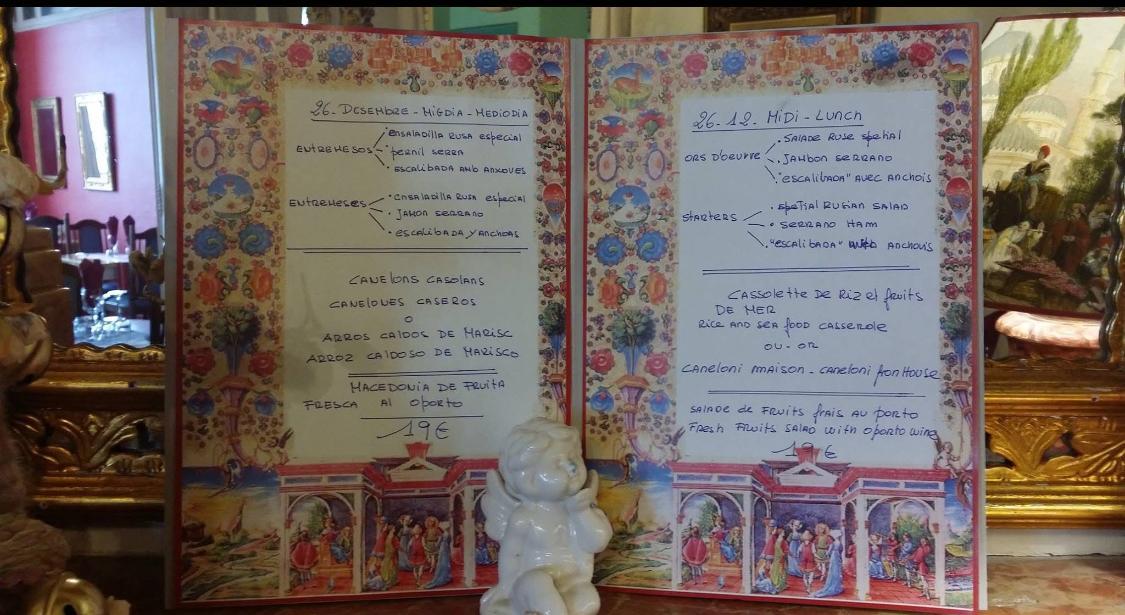 26 - DESEMBRE - MIGDIA - MEDIODIA
ENTREMESOS
• ENSALADILLA RUSA ESPECIAL
• PERNIL SERRA
• ESCALIBADA AMB ANXOVES
ENTREMESES
• ENSALADILLA RUSA ESPECIAL
• JAMON SERRANO
• ESCALIBADA Y ANCHOAS
CANELONS CASOLANS
CANELONES CASEROS
O
ARROS CALDOS DE MARISC
ARROZ CALDOSO DE MARISCO
MACEDONIA DE FRUITA
FRESCA AL OPORTO
19€
26-12. MIDI - LUNCH
ORS D'OEUVRE
• SALADE RUSE SPETIAL
• JAMBON SERRANO
• "ESCALIBADA" AVEC ANCHOIS
STARTERS
• SPETIAL RUSIAN SALAD
• SERRANO HAM
• "ESCALIBADA" ANCHOVIS
CASSOLETTE DE RIZ et fruits
DE MER
RICE AND SEA FOOD CASSEROLE
OU - OR
CANELONI MAISON - CANELONI fron HOUSE
SALADE de FRUITS frais AU PORTO
FRESH FRUITS SALAD with OPORTO wine
19€